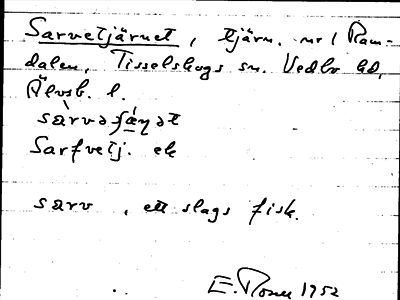 Sarvetjärnet, tjärn. nr 1 Ram-
dalen, Tisselskogs sn. Vedbo hd,
Älvsb. l.
Sarfvetj. ek
sarv, ett slags fisk.
E. 1952